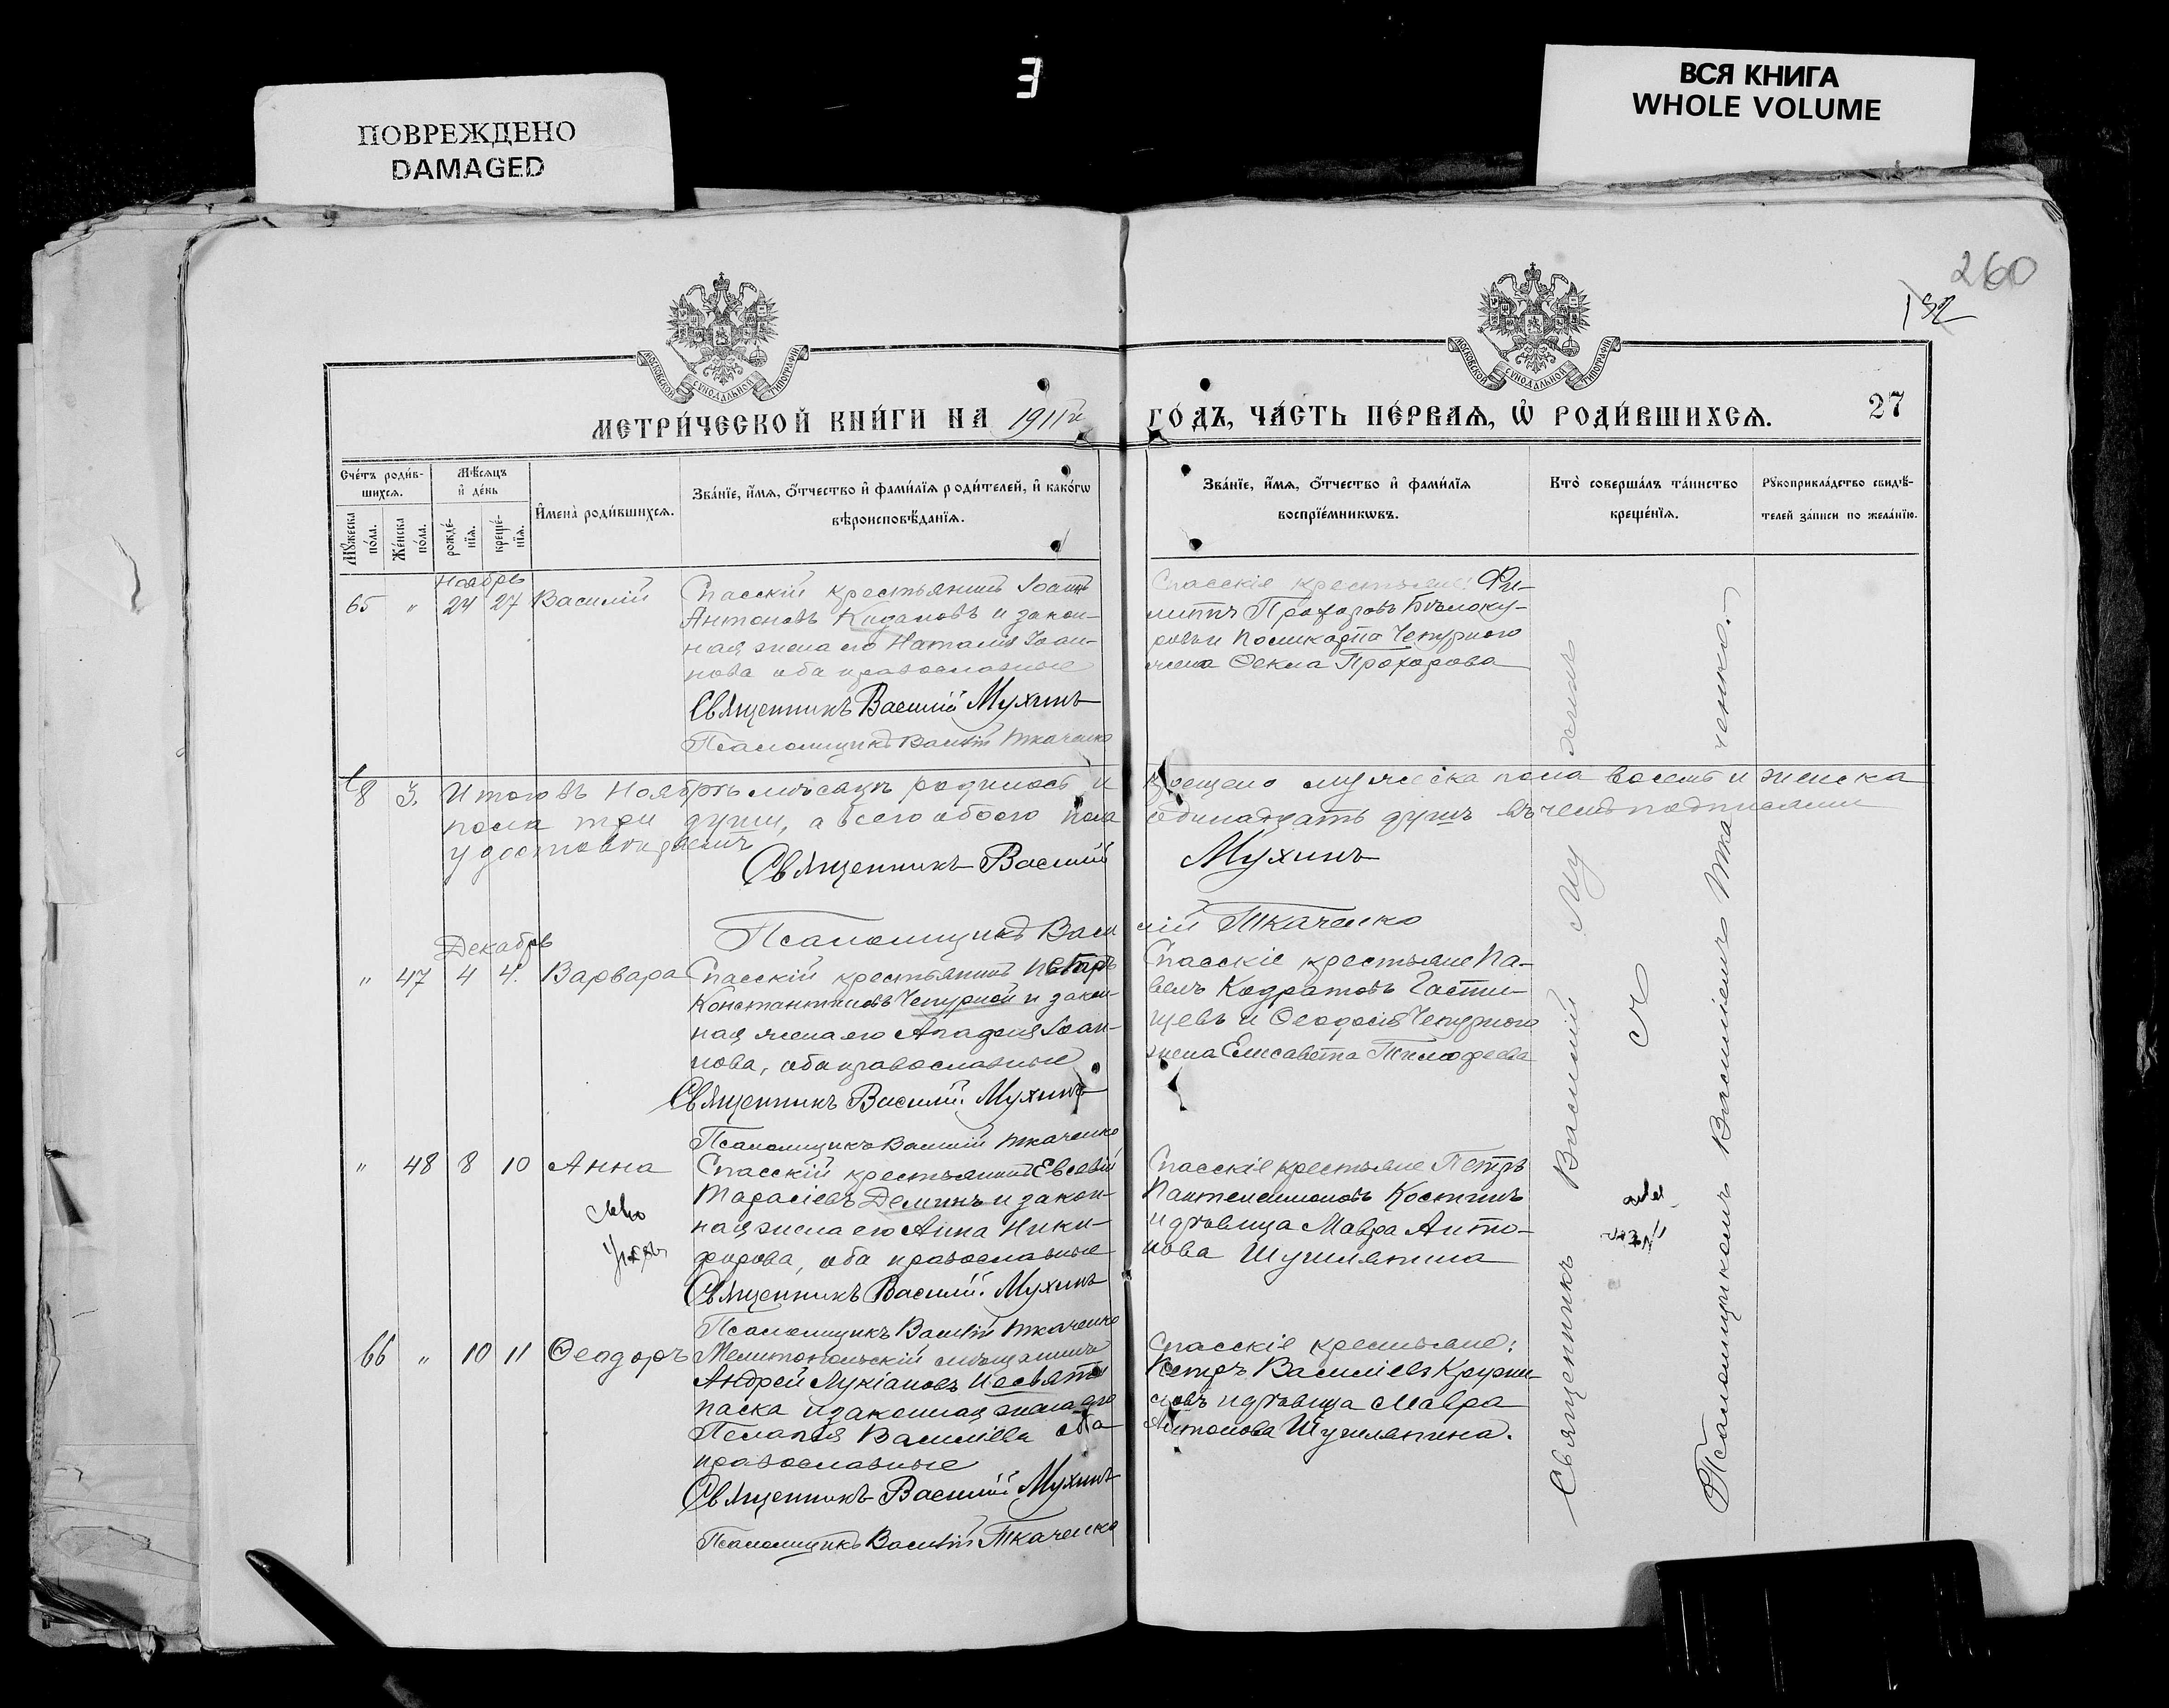 ПОВРЕЖДЕНО
DAMAGED
З
ВСЯ КНИГА
WHOLE VOLUME
260
132
МОСКОВСКОЙ СѴНОДАЛЬНОЙ ТИПОГРАФІИ
МОСКОВСКОЙ СѴНОДАЛЬНОЙ ТИПОГРАФІИ
МЕТРИ́ЧЕСКОЙ КНИ́ГИ НА 1911й
ГО́ДЪ, ЧА́СТЬ ПЕ́РВАѦ, Ѽ РОДИ́ВШИХСѦ.
27
Сче́тъ роди́в-
шихсѧ.
Мꙋ́жеска по́ла.
Же́нска по́ла.
Мѣ́сѧцъ
и҆ де́нь
рожде́-
нїѧ.
креще́-
нїѧ.
И҆мена̀ роди́вшихсѧ.
Зва́нїе, и҆́мѧ, ѻ҆́тчество и҆ фами́лїѧ роди́телей, и҆ како́гѡ
вѣроисповѣ́данїѧ.
Зва́нїе, и҆́мѧ, ѻ҆́тчество и҆ фами́лїѧ
воспрїе́мникѡвъ.
Кто̀ соверша́лъ та́инство
креще́нїѧ.
Рꙋкоприкла́дство свидѣ́-
телей за́писи по жела́нїю.
Ноябрь
65 " 24 27 Василій
Спасскій крестьянинъ Іоаннъ
Антоновъ и закон-
ная жена его Наталія Іоан-
нова оба православные
Священникъ Василій Мухинъ
Псаломщикъ Василій Ткаченко
Спасскіе крестьяне: Фи-
липпъ Прохоровъ Бѣлоку-
ровъ и Поликарпа Чепурного
жена Ѳекла Прохорова
8 3. Итого въ Ноябрѣ мѣсяцѣ родилось и крещено мужеска пола восемь и женска
пола три души, а всего обоего пола одинадцать душъ въ чемъ подписами
удостовѣряемъ
Священникъ Василій Мухинъ
Псаломщикъ Василій Ткаченко
Декабрь
" 47 4 4. Варвара
Спасскій крестьянинъ Петръ
Константиновъ Чепурной и закон-
ная жена его Агафія Іоан-
нова, оба православные
Священникъ Василій Мухинъ
Псаломщикъ Василій Ткаченко
Спасскіе крестьяне Па-
велъ Кодратовъ
и Ѳеодосія Чепурного
жена Елисавета Тимофеева
" 48 8 10 Анна
Спасскій крестьянинъ Евсевій
Тарасіевъ Деминъ и закон-
ная жена его Анна Ники-
форова, оба православные
Священникъ Василій Мухинъ
Псаломщикъ Василій Ткаченко
Спасскіе крестьяне Петръ
Пантелеимоновъ Костинъ
и дѣвица Мавра Анто-
нова Шушлянина
66 " 10 11 Ѳеодоръ
Мелитопольскій мѣщанинъ
Андрей Лукіановъ Несвято
паска и законная жена его
Пелагія Василіева оба
православные
Священникъ Василій Мухинъ
Псаломщикъ Василій Ткаченко
Спасскіе крестьяне:
Петръ Василіевъ
и дѣвица Мавра
Антонова Шушлянина.
Священникъ Василій Мухинъ
съ
Псаломщикомъ Василіемъ Ткаченко.